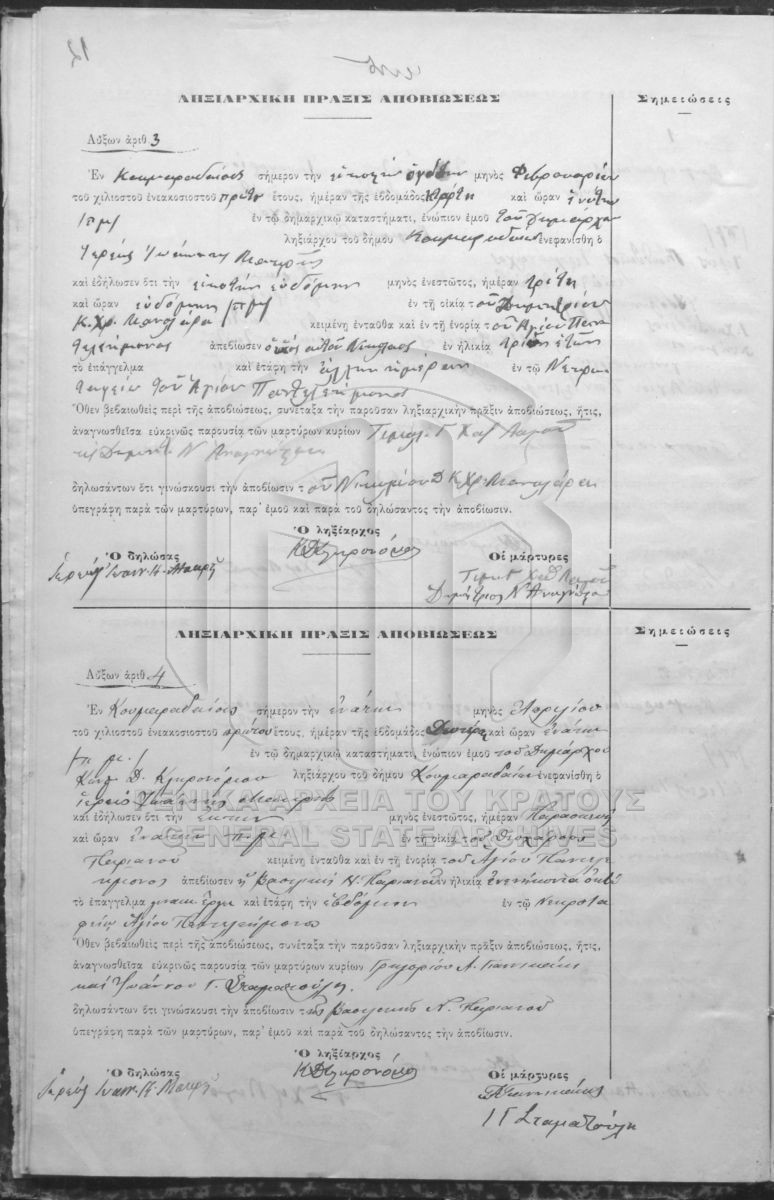 12
ΛΗΞΙΑΡΧΙΚΗ ΠΡΑΞΙΣ ΑΠΟΒΙΩΣΕΩΣ
Σημειώσεις
Αὔξων ἀριθ. 3
Ἐν Κουμαραδαίοις σήμερον τὴν εἰκοστὴν ὀγδόην μηνὸς Φεβρουαρίου
τοῦ χιλιοστοῦ ἐνεακοσιοστοῦ πρώτου ἔτους, ἡμέραν τῆς ἑβδομάδος Τετάρτη καὶ ὥραν ἐνάτην
π.μ. ἐν τῷ δημαρχικῷ καταστήματι, ἐνώπιον ἐμοῦ τοῦ Δημάρχου
ληξιάρχου τοῦ δήμου Κουμαραδαίων ἐνεφανίσθη ὁ
Ἱερεὺς Ἰωάννης Μακρῆς
καὶ ἐδήλωσεν ὅτι τὴν εἰκοστὴν ἑβδόμην μηνὸς ἐνεστῶτος, ἡμέραν τρίτην
καὶ ὥραν ἑβδόμην π.μ. ἐν τῇ οἰκίᾳ τοῦ Δημητρίου
Κ. Χρ. Μανωλάρα κειμένῃ ἐνταῦθα καὶ ἐν τῇ ἐνορίᾳ τοῦ Ἁγίου Παν
τελεήμονος ἀπεβίωσεν ὁ υἱὸς αὐτοῦ Νικόλαος ἐν ἡλικίᾳ τριῶν ἐτῶν
τὸ ἐπάγγελμα καὶ ἐτάφη τὴν ἄλλην ἡμέραν ἐν τῷ Νεκρο
ταφείῳ τοῦ Ἁγίου Παντελεήμονος
Ὅθεν βεβαιωθεὶς περὶ τῆς ἀποβιώσεως, συνέταξα τὴν παροῦσαν ληξιαρχικὴν πρᾶξιν ἀποβιώσεως, ἥτις,
ἀναγνωσθεῖσα εὐκρινῶς παρουσίᾳ τῶν μαρτύρων κυρίων
Δημητ. Ν. Ἀναγνώστου
δηλωσάντων ὅτι γινώσκουσι τὴν ἀποβίωσιν τοῦ Νικολάου Δ. Κ. Χρ. Μανωλάρα
ὑπεγράφη παρὰ τῶν μαρτύρων, παρ' ἐμοῦ καὶ παρὰ τοῦ δηλώσαντος τὴν ἀποβίωσιν.
Ὁ ληξίαρχος
ΚΔΚληρονόμος
Ὁ δηλώσας
Ἱερεὺς Ἰωαν. Κ. Μακρῆς
Οἱ μάρτυρες
Δημήτριος Ν. Ἀναγνώστου
ΛΗΞΙΑΡΧΙΚΗ ΠΡΑΞΙΣ ΑΠΟΒΙΩΣΕΩΣ
Σημειώσεις
Αὔξων ἀριθ. 4
Ἐν Κουμαραδαίοις σήμερον τὴν ἐνάτην μηνὸς Ἀπριλίου
τοῦ χιλιοστοῦ ἐνεακοσιοστοῦ πρώτου ἔτους, ἡμέραν τῆς ἑβδομάδος Δευτέρα καὶ ὥραν ἐνάτην
π.μ. ἐν τῷ δημαρχικῷ καταστήματι, ἐνώπιον ἐμοῦ τοῦ Δημάρχου
Κων. Δ. Κληρονόμου ληξιάρχου τοῦ δήμου Κουμαραδαίων ἐνεφανίσθη ὁ
ἱερεὺς Ἰωάννης Μακρῆς
καὶ ἐδήλωσεν ὅτι τὴν ἕκτην μηνὸς ἐνεστῶτος, ἡμέραν Παρασκευὴ
καὶ ὥραν ἐνάτην π.μ. ἐν τῇ οἰκίᾳ τοῦ Θεοχάρους
Καριανοῦ κειμένῃ ἐνταῦθα καὶ ἐν τῇ ἐνορίᾳ τοῦ Ἁγίου Παντελε
ήμονος ἀπεβίωσεν ἡ Βασιλικὴ Ν. Καριανοῦ ἐν ἡλικίᾳ ἐνενήκοντα ὀκτὼ
τὸ ἐπάγγελμα καὶ ἐτάφη τὴν ἑβδόμην ἐν τῷ Νεκροτα
φείῳ Ἁγίου Παντελεήμονος
Ὅθεν βεβαιωθεὶς περὶ τῆς ἀποβιώσεως, συνέταξα τὴν παροῦσαν ληξιαρχικὴν πρᾶξιν ἀποβιώσεως, ἥτις,
ἀναγνωσθεῖσα εὐκρινῶς παρουσίᾳ τῶν μαρτύρων κυρίων Γρηγορίου Α. Γιαννακάκη
καὶ Ἰωάννου Γ. Σταματούλη.
δηλωσάντων ὅτι γινώσκουσι τὴν ἀποβίωσιν τῆς Βασιλικῆς Ν. Καριανοῦ
ὑπεγράφη παρὰ τῶν μαρτύρων, παρ' ἐμοῦ καὶ παρὰ τοῦ δηλώσαντος τὴν ἀποβίωσιν.
Ὁ ληξίαρχος
ΚΔΚληρονόμος
Ὁ δηλώσας
Ἱερεὺς Ἰωαν. Κ. Μακρῆς
Οἱ μάρτυρες
Ι Γ Σταματούλη
ΓΕΝΙΚΑ ΑΡΧΕΙΑ ΤΟΥ ΚΡΑΤΟΥΣ
GENERAL STATE ARCHIVES